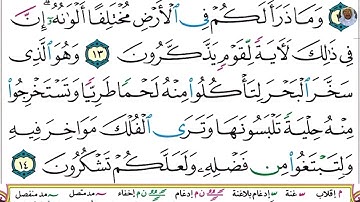 وَمَا ذَرَأَ لَكُمْ فِى ٱلْأَرْضِ مُخْتَلِفًا أَلْوَٰنُهُۥٓ ۗ إِنَّ
فِى ذَٰلِكَ لَءَايَةً لِّقَوْمٍ يَذَّكَّرُونَ ١٣ وَهُوَ ٱلَّذِى
سَخَّرَ ٱلْبَحْرَ لِتَأْكُلُوا۟ مِنْهُ لَحْمًا طَرِيًّا وَتَسْتَخْرِجُوا۟
مِنْهُ حِلْيَةً تَلْبَسُونَهَا وَتَرَى ٱلْفُلْكَ مَوَاخِرَ فِيهِ
وَلِتَبْتَغُوا۟ مِن فَضْلِهِۦ وَلَعَلَّكُمْ تَشْكُرُونَ ١٤
م إقلاب غنة إدغام بلاغنة ن م إدغام ن م إخفاء مد متصل مد منفصل